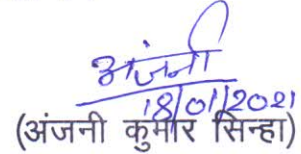 अंजनी
18/01/2021
(अंजनी कुमार सिन्हा)